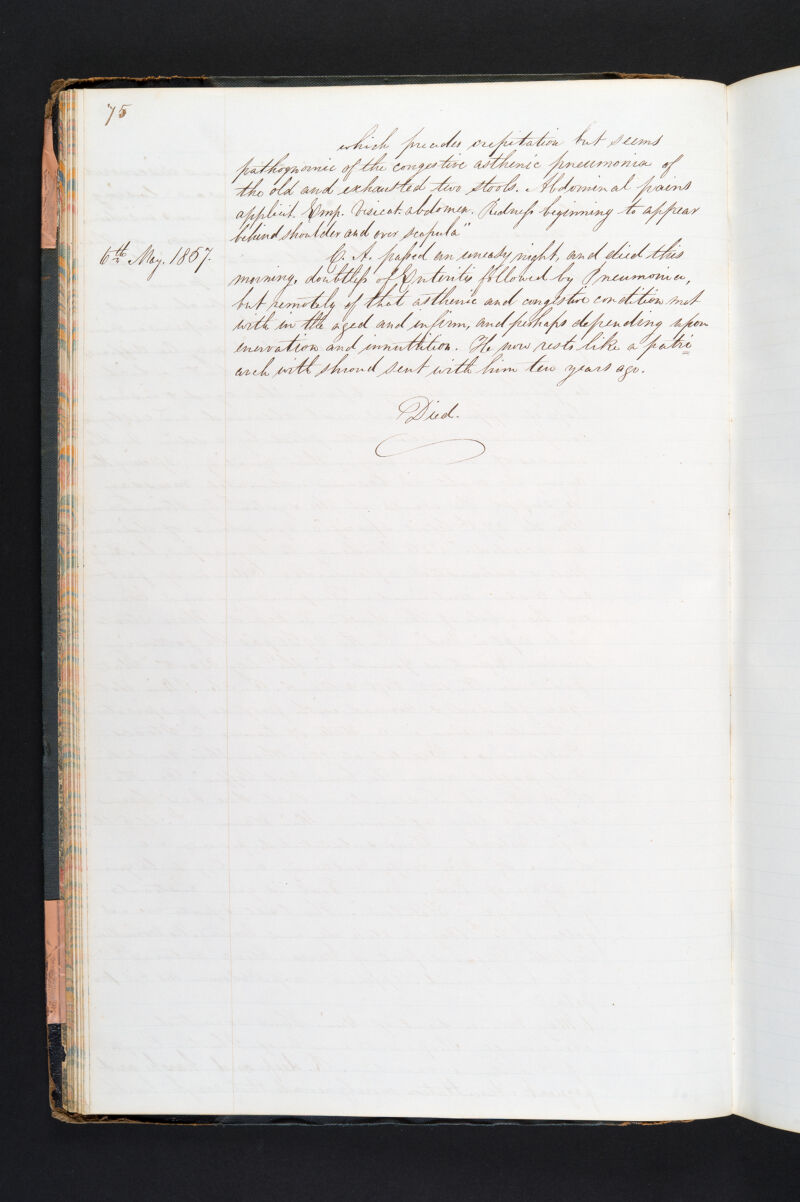 75
which precedes crepitation but seems
pathognomic of the congestive asthenic pneumonia of
the old and exhausted two stools. Abdominal pains
applicat. Emp. Vesicat. abdomen. Redness beginning to appear
behind shoulder and over scapula"
6th May. 1857. C. A. passed an uneasy night, and died this
morning, doubtless of Enteritis followed by Pneumonia,
but remotely of that asthenic and congestive condition met
with in the aged and infirm, and perhaps depending upon
enervation and innutrition. He now rests like a patri=
arch with shroud sent with him ten years ago.
Died.